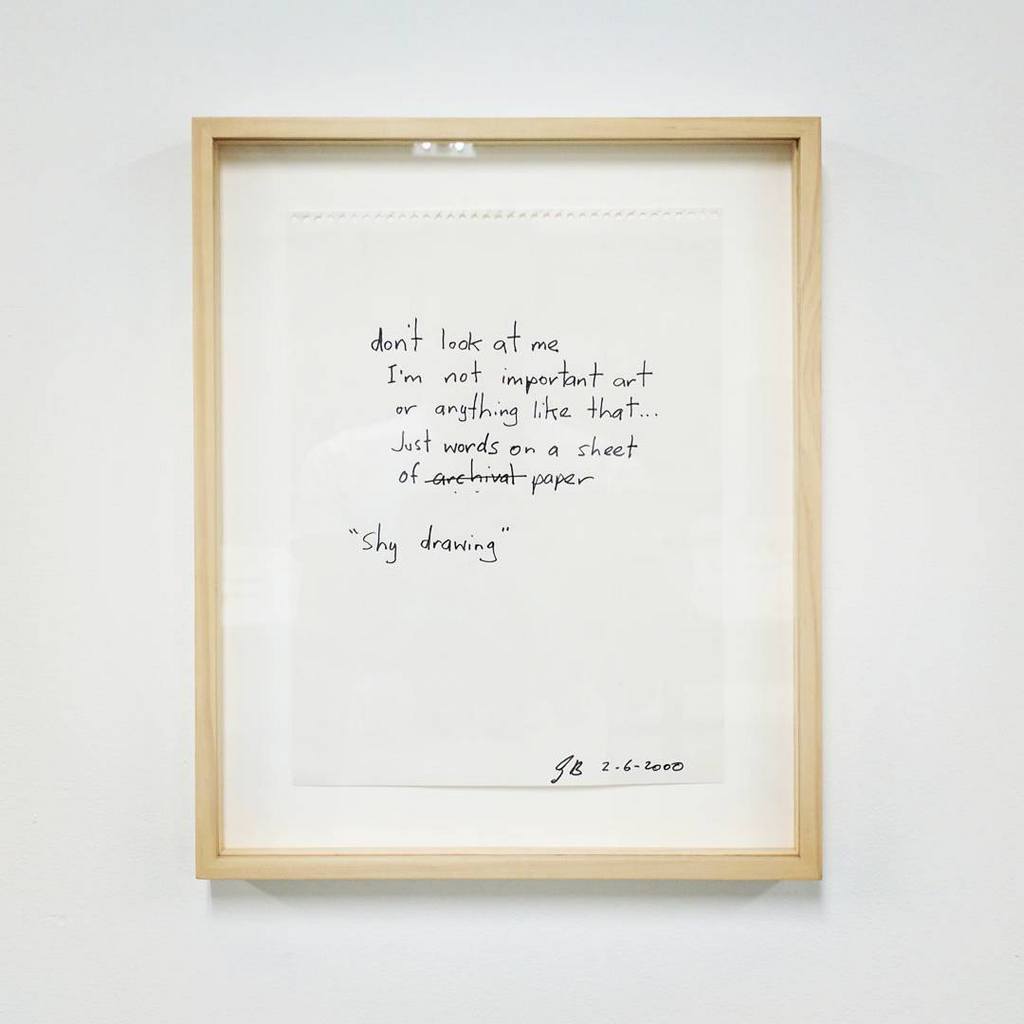 don't look at me
I'm not important art
or anything like that...
Just words on a sheet
of archival paper
"Shy drawing"
JB 2-6-2000